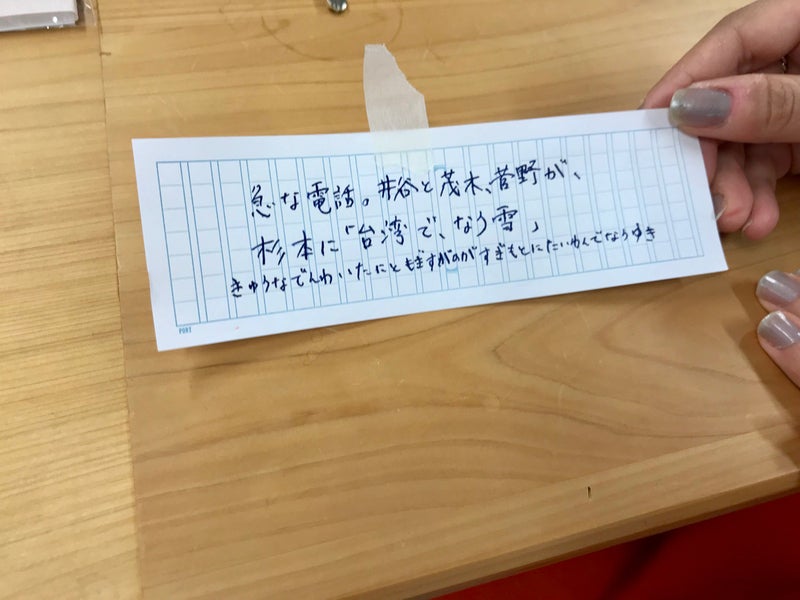 急な電話。井谷と茂木、菅野が、
杉本に「台湾で、なう雪」
きゅうなでんわいたにともぎすがのがすぎもとにたいわんでなうゆき
PORT